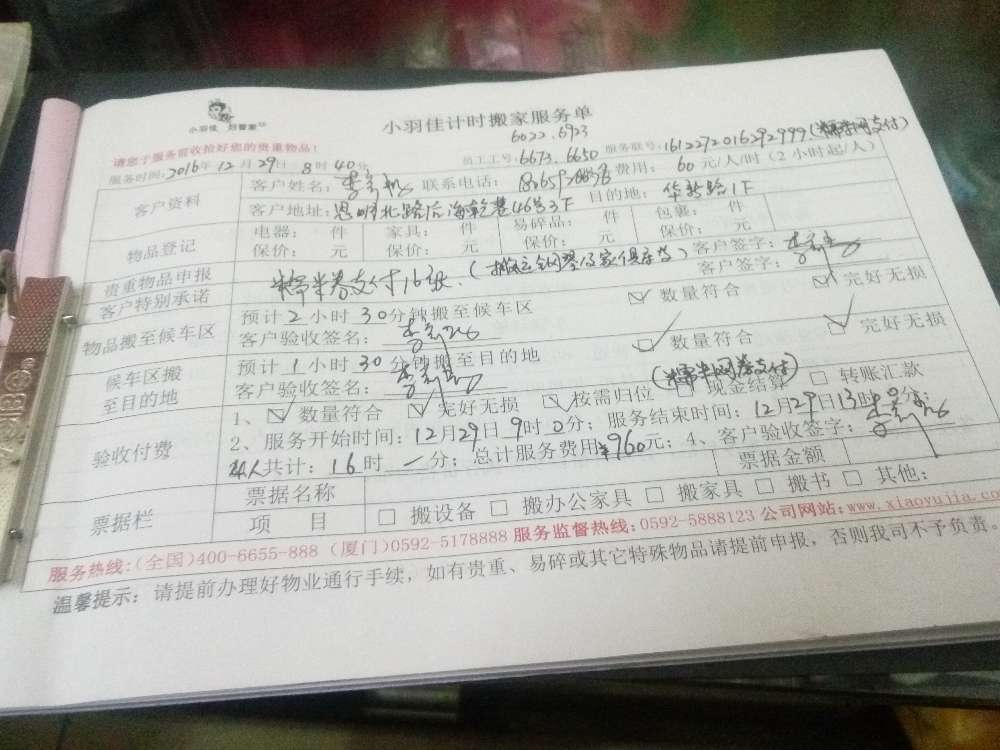 小羽佳 好管家
小羽佳计时搬家服务单
6022.6923
请您于服务前收拾好您的贵重物品！
员工工号：6673.6650 服务联号：161227201629２999（糯米网支付）
服务时间：2016年12月29日8时40分
客户资料
客户姓名： 联系电话： 费用：60元/人/时（2小时起/人）
客户地址：思明北路后海乾巷46号3F 目的地：华新路1F
物品登记
电器： 件 家具： 件 易碎品： 件 包裹： 件
保价： 元 保价： 元 保价： 元 保价： 元
贵重物品申报
客户签字：
客户特别承诺
糯米券支付16张.（搬运钢琴及家俱
客户签字：
物品搬至候车区
预计2小时30分钟搬至候车区
客户验收签名：
数量符合 完好无损
候车区搬至目的地
预计1小时30分钟搬至目的地
客户验收签名：
数量符合 完好无损
验收付费
（糯米网券支付）
1、 数量符合 完好无损 按需归位 现金结算 转账汇款
2、服务开始时间：12月29日9时0分；服务结束时间：12月29日13时0分；
4人共计：16时一分；总计服务费用¥960元；4、客户验收签字：
票据栏
票据名称 票据金额
项 目 搬设备 搬办公家具 搬家具 搬书 其他：
服务热线：（全国）400-6655-888（厦门）0592-5178888 服务监督热线：0592-5888123 公司网站：www.xiaoyujia.co
温馨提示：请提前办理好物业通行手续，如有贵重、易碎或其它特殊物品请提前申报，否则我司不予负责。